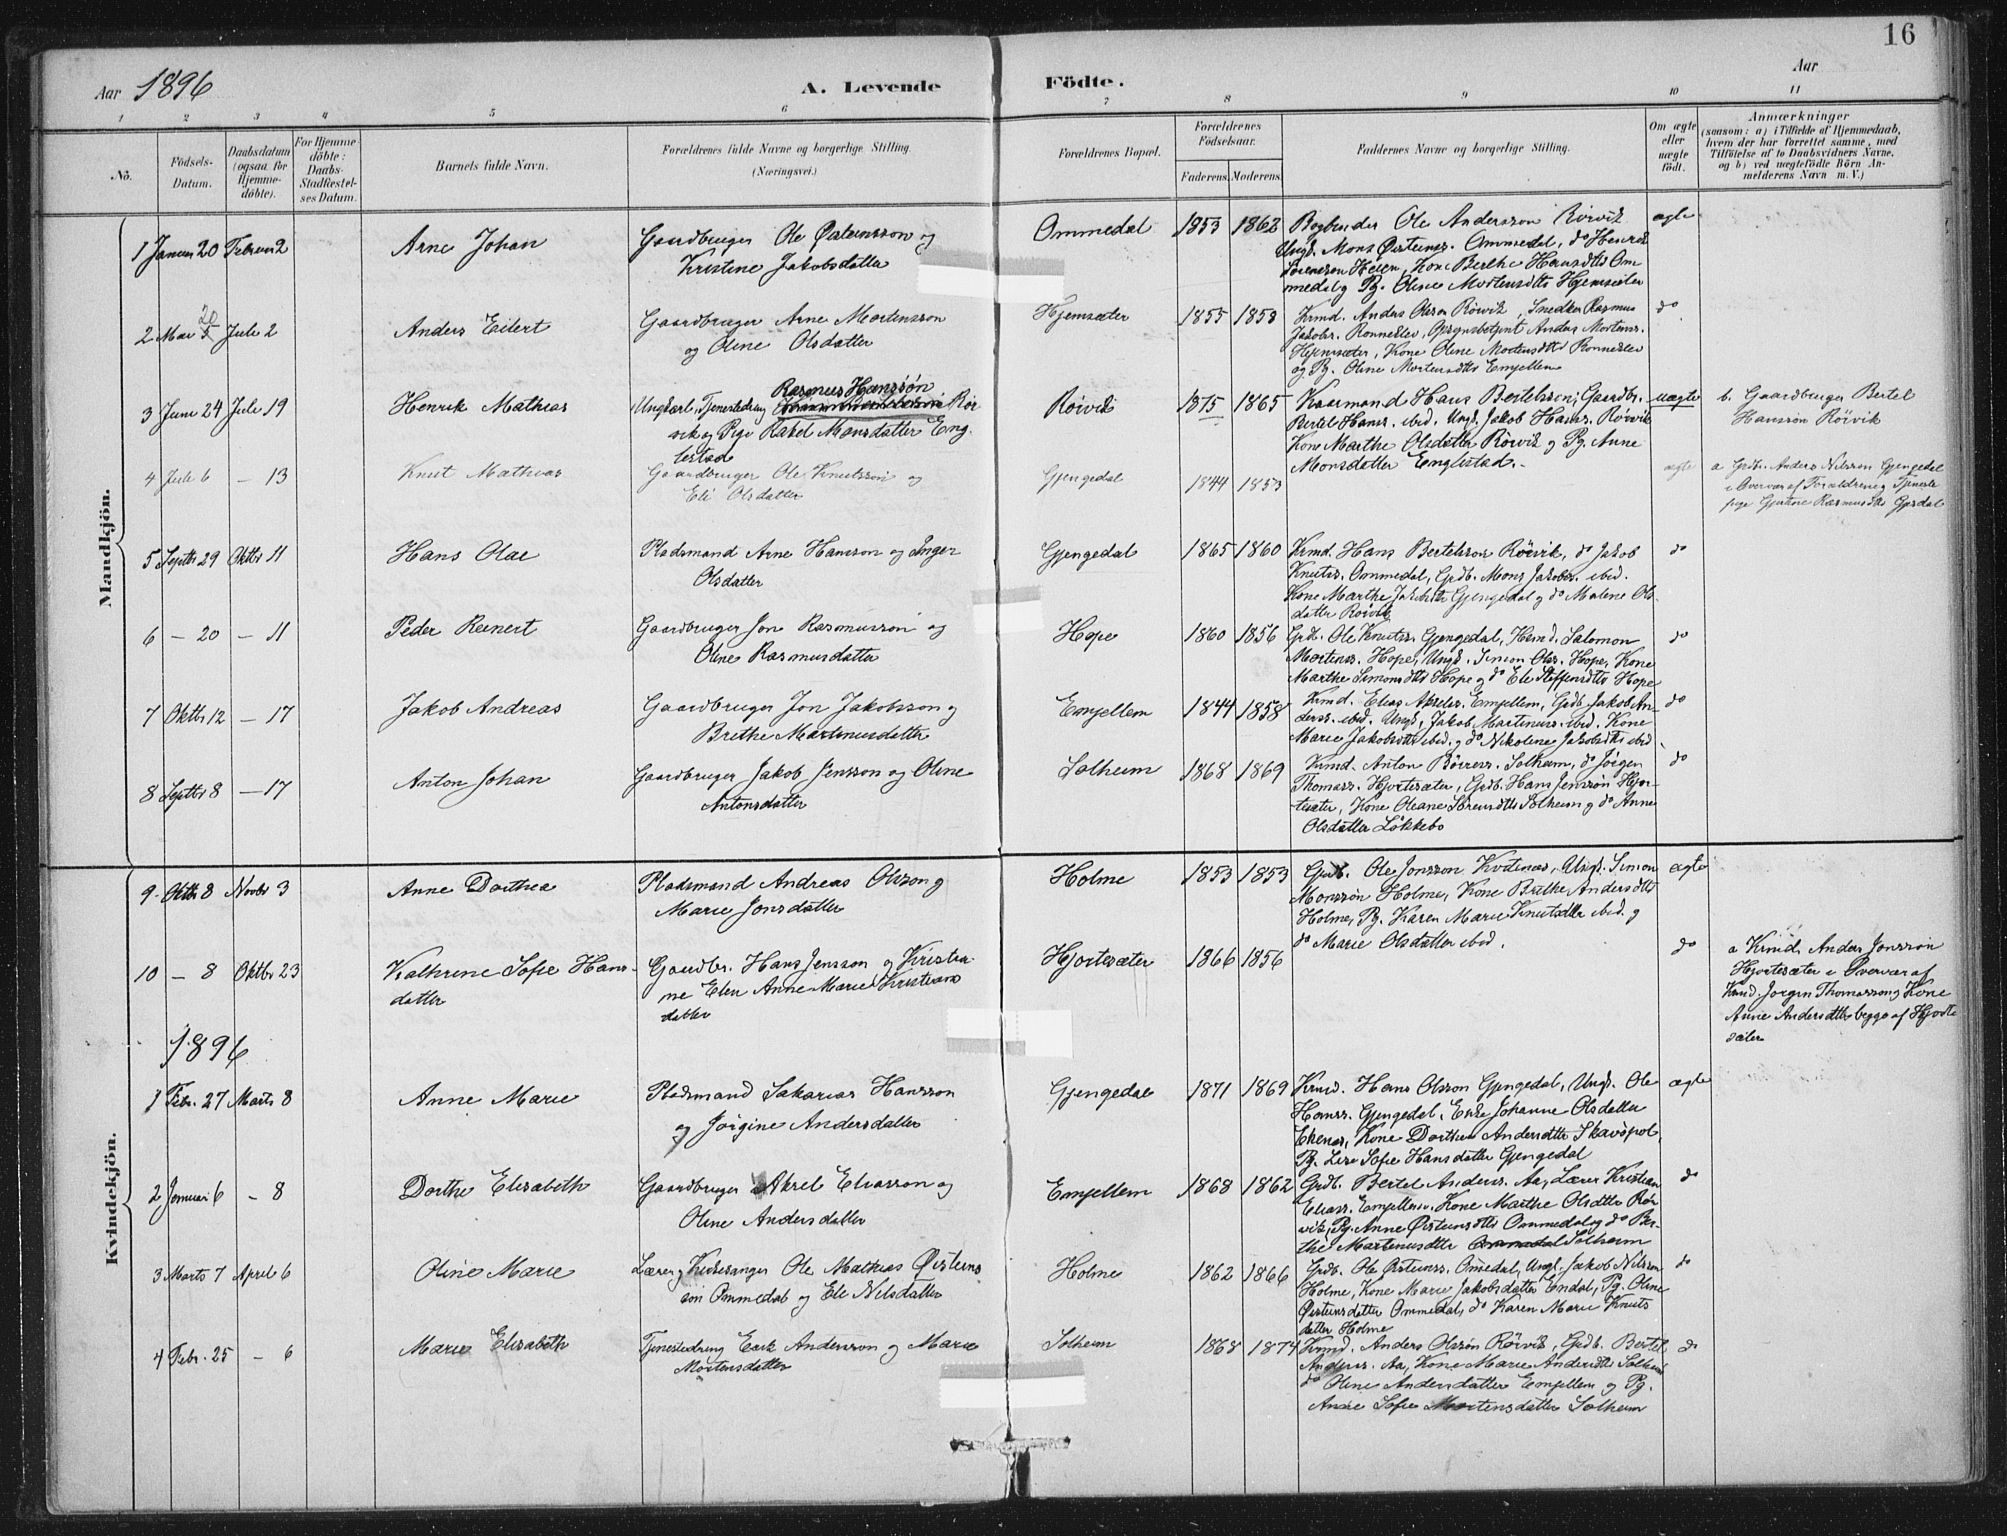 16
Aar 1896
A. Levende Födte.
Aar
1 2 3 4 5 6 7 8 9 10 11
No.
Födsels-Datum.
Daabsdatum (ogsaa for Hjemmedöbte).
For Hjemmedöbte: Daabs-Stadfæstelses Datum.
Barnets fulde Navn.
Forældrenes fulde Navne og borgerlige Stilling. (Næringsvei.)
Forældrenes Bopæl.
Forældrenes Födselsaar.
Faderens. Moderens.
Faddernes Navne og borgerlige Stilling.
Om ægte eller uægte födt.
Anmærkninger
(saasom: a) i Tilfælde af Hjemmedaab, hvem der har forrettet samme, med Tilföielse af to Daabsvidners Navne, og b) ved uægtefödte Börn Anmelderens Navn m. V.)
Mandkjön.
1 Januar 20 Februar 2 Arne Johan
Gaardbruger Ole Østensson og
Kristine Jakobsdatter
Ommedal 1853 1862
Bogbinder Ole Andersson Rörvik
Ungk. Mons Østenss. Ommedal, do Henrik
Sörensson Heien, Kone Berthe Hansdtr Om
medal og Pg. Oline Mortensdtr Hjemsæter
ægte
2 Mai 20 5 Juli 2 Anders Eilert
Gaardbruger Arne Mortensson
og Oline Olsdatter
Hjemsæter 1855 1853
Krmd. Anders Olsson Rörvik, Snedker Rasmus
Jakobs. Ronneklev, Opsynsbetjent Anders Mortens.
Hjemsæter, Kone Oline Mortensdtr Ronneklev
og Pg. Oline Mortensdtr Emjellem
do
3 Juni 24 Juli 19 Henrik Mathias
Rasmus Hanssön
Ungkarl, Tjenestedreng Rör
vik og Pige Rakel Monsdatter Eng
lestad
Rörvik 1875 1865
Kaarmand Hans Bertelsson, Gaardbr.
Bertel Hans. ibid. Ungk. Jakob Hans. Rörvik
Kone Marthe Olsdatter Rörvik og Pg. Anne
Monsdatter Englestad.
uægte
b. Gaardbruger Bertel
Hanssön Rörvik
4 Juli 6 — 13 Knut Mathias
Gaardbruger Ole Knutssön og
Eli Olsdatter
Gjengedal 1844 1853
ægte
a Grdb. Anders Nilsson Gjengedal
i Overvær af Forældrene og Tjeneste
pige Gjertine Rasmusdtr Gjesdal
5 Septbr 29 Oktbr 11 Hans Olai
Pladsmand Arne Hansson og Inger
Olsdatter
Gjengedal 1865 1860
Krmd. Hans Bertelsson Rörvik, do Jakob
Knuts. Ommedal, Grdb. Mons Jakobs. ibid.
Kone Marthe Jakobsdtr Gjengedal og do Malene Ols
datter Rörvik
do
6 — 20 — 11 Peder Reinert
Gaardbruger Jon Rasmussön og
Oline Rasmusdatter
Hope 1860 1856
Grdb. Ole Knuts. Gjengedal, Krmd. Salomon
Mortenss. Hope, Ungk. Simon Ols. Hope, Kone
Marthe Simonsdtr Hope og do Eli Steffensdtr Hope
do
7 Oktbr 12 — 17 Jakob Andreas
Gaardbruger Jon Jakobsson og
Brethe Martinusdatter
Emjellem 1844 1858
Krmd. Elias Akselss. Emjellem, Grdb. Jakob An-
derss. ibid. Ungk. Jakob Martinuss. ibid. Kone
Marie Jakobsdtr ibid. og do Nikoline Jakobsdtr ibid
do
8 Septbr 8 — 17 Anton Johan
Gaardbruger Jakob Jensson og Oline
Antonsdatter
Solheim 1868 1869
Krmd. Anton Börress. Solheim, do Jörgen
Thomass. Hjortesæter, Grdb. Hans Jenssön Hjor-
tesæter, Kone Oleane Sörensdtr Solheim og do Anne
Olsdatter Lökkebo
do
Kvindekjön.
9 Oktbr 8 Novbr 3 Anne Dorthea
Pladsmand Andreas Olsson og
Marie Jonsdatter
Holme 1853 1853
Grdb. Ole Jonsson Kvitenes, Ungk. Simon
Monssön Holme, Kone Brithe Andersdtr
Holme, Pg. Karen Marie Knutsdtr ibid. og
do Marie Olsdatter ibid.
ægte
10 — 8 Oktbr 23 Kathrine Sofie Hans-
datter
Gaardbr. Hans Jensson og Kristia
ne Elen Anne Marie Kristians
datter
Hjortesæter 1866 1856
do
a Krmd. Anders Jonssön
Hjortesæter i Overvær af
Krmd. Jörgen Thomasson og Kone
Anne Andersdtr begge af Hjorte
sæter
1896
1 Febr. 27 Marts 8 Anne Marie
Pladsmand Sakarias Hansson
og Jörgine Andersdatter
Gjengedal 1871 1869
Krmd. Hans Olsson Gjengedal, Ungk. Ole
Hanss. Gjengedal, Enke Johanne Olsdatter
Ekenes, Kone Dorthea Andersdtr Skavöpol,
Pg. Lise Sofie Hansdatter Gjengedal
ægte
2 Januar 6 — 8 Dorthe Elisabeth
Gaardbruger Aksel Eliasson og
Oline Andersdatter
Emjellem 1868 1862
Grdb. Bertel Anders. Aa, Lærer Kristian
Eliass. Emjellem, Kone Marthe Olsdtr Rör
vik, Pg. Anne Østensdtr Ommedal og do Ber-
the Martinusdtr Ommedal Solheim
do
3 Marts 7 April 6 Oline Marie
Lærer og Kirkesanger Ole Mathias Østens
son Ommedal og Eli Nilsdatter
Holme 1862 1866
Grdb. Ole Østenss. Omedal, Ungk. Jakob Nilsson
Holme, Kone Marie Jakobsdatter Endal, Pg. Oline
Østensdatter Ommedal, do Karen Marie Knuts
datter Holme
do
4 Febr. 25 — 6 Marie Elisabeth
Tjenestedreng Eark Andersson og Marie
Mortensdatter
Solheim 1868 1874
Krmd. Anders Olssön Rörvik, Grdb. Bertel
Anders. Aa, Kone Marie Andersdtr Solheim
do Oline Andersdatter Emjellem og Pg.
Anne Sofie Mortensdatter Solheim
do